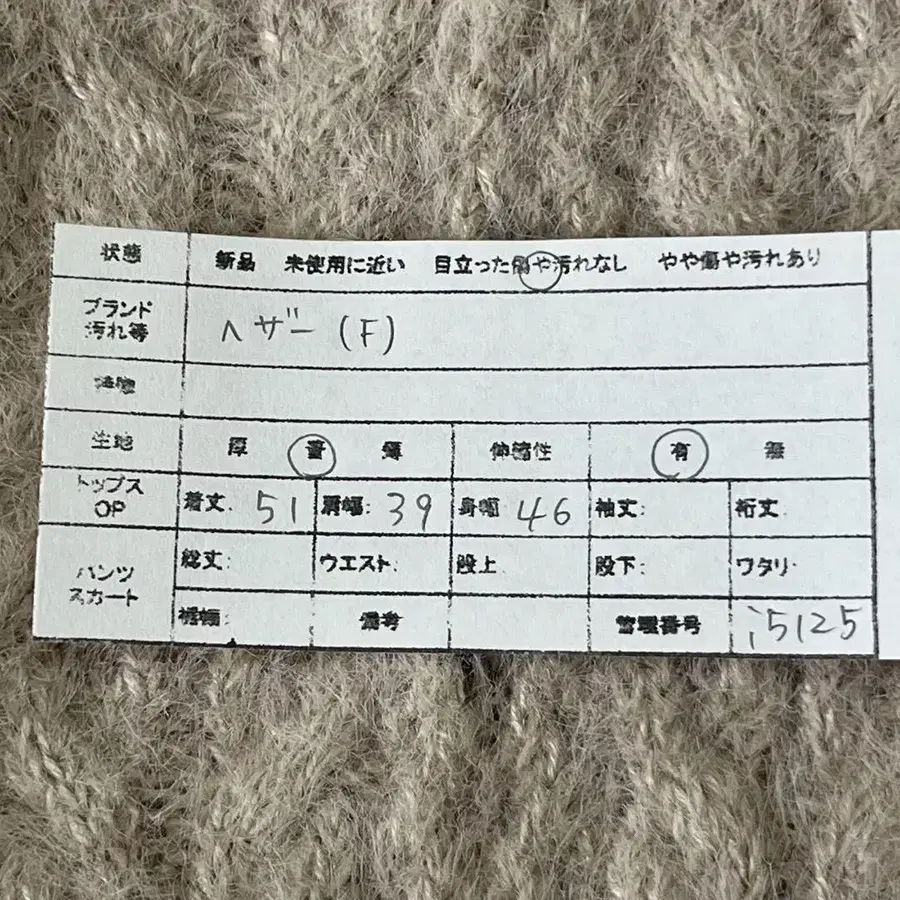 状態 新品 未使用に近い 目立った傷や汚れなし やや傷や汚れあり
ブランド
汚れ等
ヘザー(F)
生地 厚 普 薄 伸縮性 有 無
トップス
OP
着丈. 51 肩幅: 39 身幅 46 袖丈: 裄丈
パンツ
スカート
総丈: ウエスト. 股上 股下: ワタリ
裾幅: 備考 管理番号 i5125